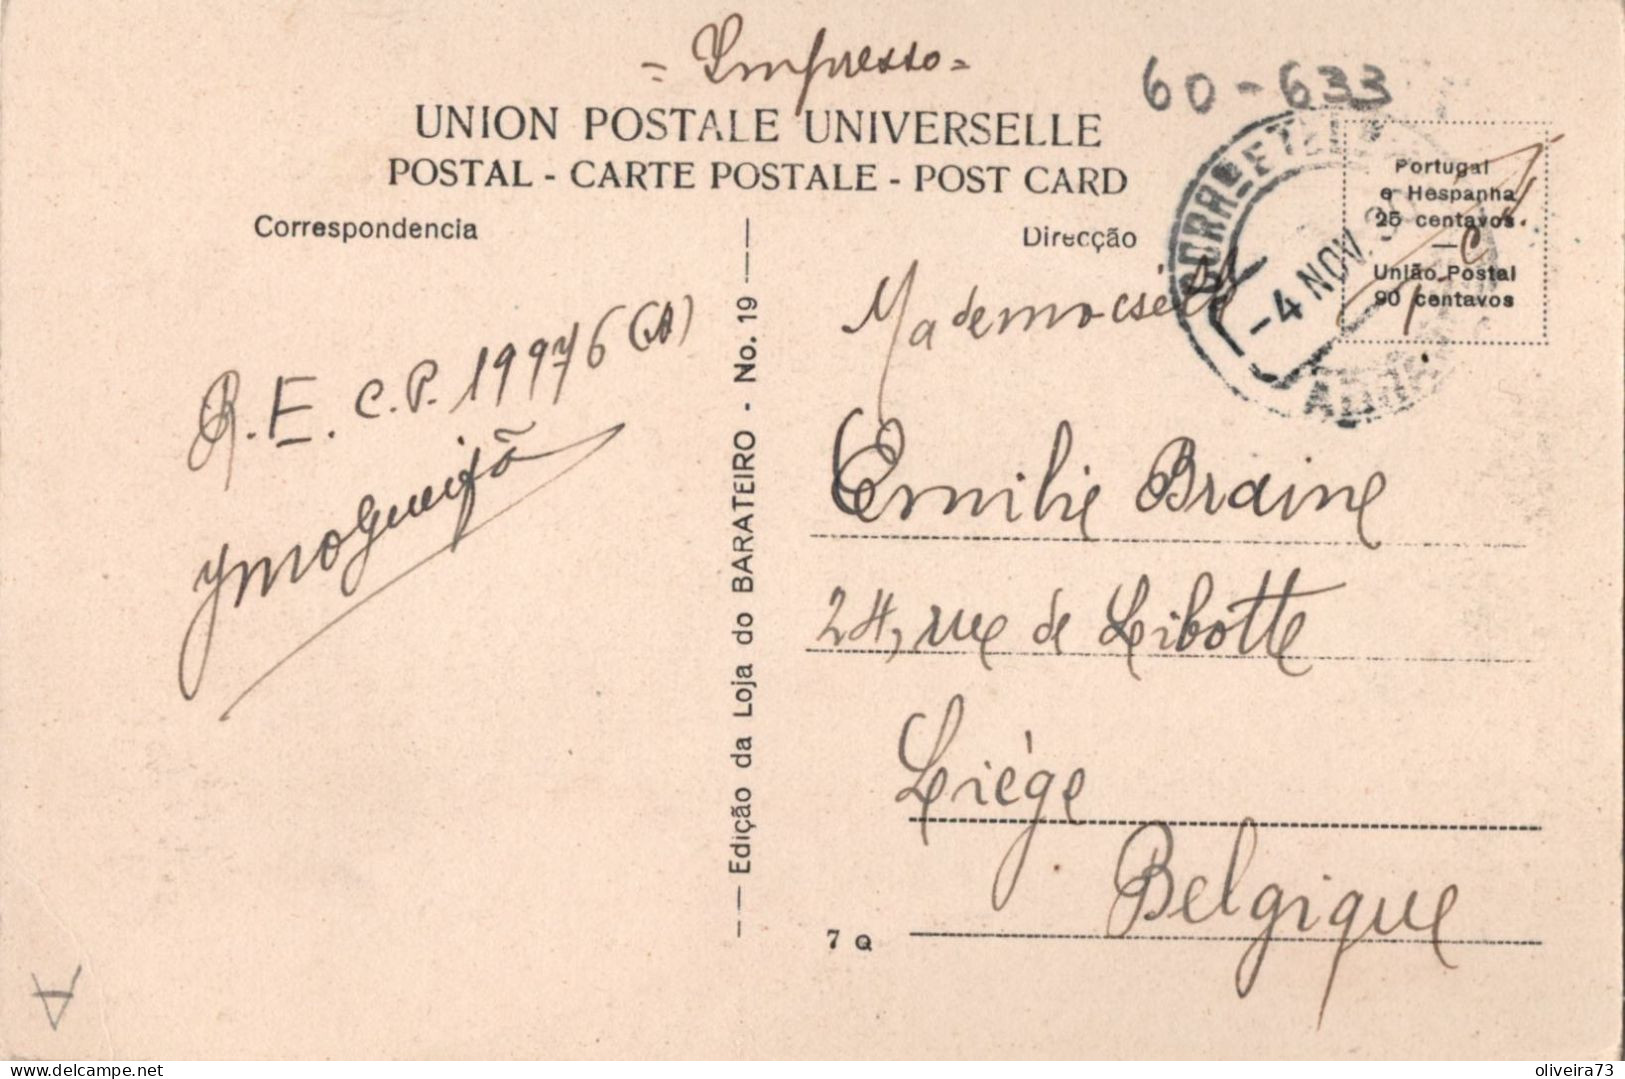 = Impresso =
60-633
UNION POSTALE UNIVERSELLE
POSTAL - CARTE POSTALE - POST CARD
Correspondencia
Direcção
Portugal
e Hespanha
25 centavos
—
União Postal
90 centavos
-4 NOV. 3
Mademoiselle
R. E. C.P. 19976 (A)
Emilie Braine
24, rue de Libotte
Liége
Belgique
Edição da Loja do BARATEIRO - No. 19
7 Q
A
delcampe.net
oliveira73